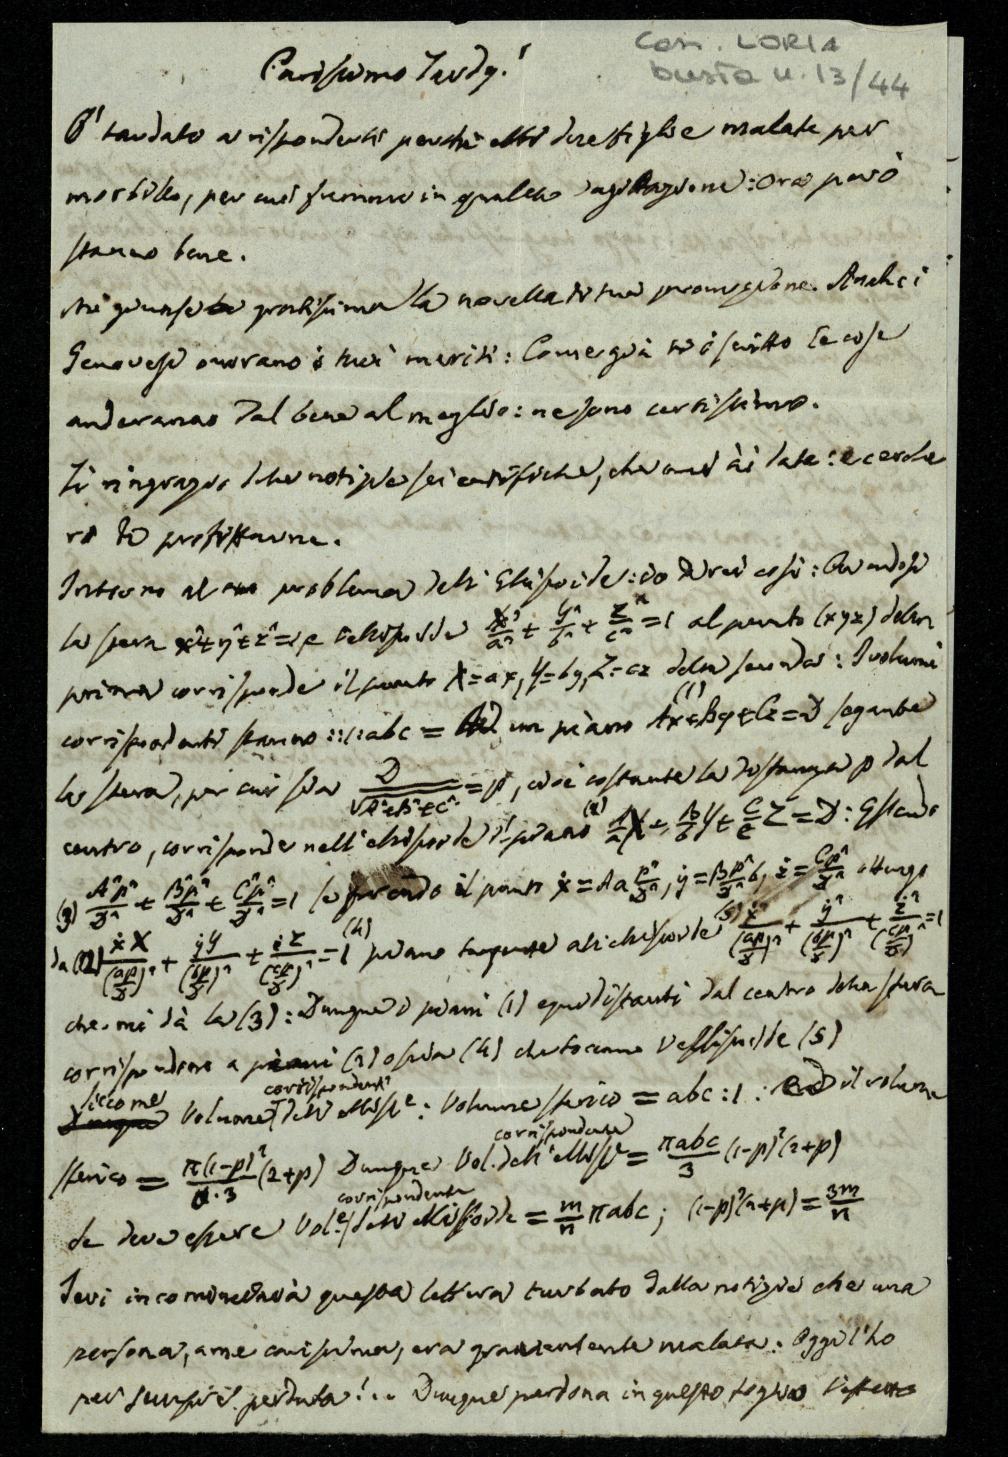 Cas. LORIA
busta n. 13/44
Carissimo Tardy!
O' tardato a risponderti perchè ebbi due figlie malate per
morbillo, per cui fummo in qualche agitazione: Ora però
stanno bene.
Mi giunse gratissima la novella di tua promozione. Anche i
Genovesi onorano i tuoi meriti: Come già ti ò scritto le cose
anderanno dal bene al meglio: ne sono certissimo.
Ti ringrazio delle notizie scientifiche, che mi ài date: e cerche
rò di profittarne.
Intorno al problema dell'Elissoide: io direi così: Avendosi
la sfera x²+y²+z²=1, e l'elissoide X²/a² + Y²/b² + Z²/c² = 1 al punto (xyz) della
prima corrisponde il punto X=ax, Y=by, Z=cz della seconda: I volumi
corrispondenti stanno ::1:abc = un piano (1) Ax+By+Cz=D segante
la sfera, per cui sia D/√A²+B²+C² = p, cioè costante la distanza p dal
centro, corrisponde nell'elissoide il piano (2) A/a X + B/b Y + C/c Z = D: Essendo
(3) A²p²/D² + B²p²/D² + C²p²/D² = 1 facendo il punto ẋ = Aa p²/D, ẏ = B p²/D b, ż = C p²/D ottengo
da (2) ẋX/(ap/D)² + ẏY/(bp/D)² + żZ/(cp/D)² = 1 (4) piano tangente all'elissoide (5) ẋ²/(ap/D)² + ẏ²/(bp/D)² + ż²/(cp/D)² = 1
che mi dà la (3): Dunque i piani (1) equidistanti dal centro della sfera
corrispondono a piani (2) ossia (4) che toccano l'elissoide (5)
siccome Volume corrispondente dell'elliss.e : Volume sferico = abc:1 : ed il volume
sferico = π(1-p)²/3 (2+p) Dunque Vol. corrispondente dell'elliss.e = πabc/3 (1-p)²(2+p)
che deve essere Vol.e corrispondente dell'ellissoide = m/n πabc; (1-p)²(2+p) = 3m/n
Ieri incominciava questa lettera turbato dalla notizia che una
persona, a me carissima, era gravemente malata: Oggi l'ho
per sempre perduta!.. Dunque perdona in questo foglio l'effetto